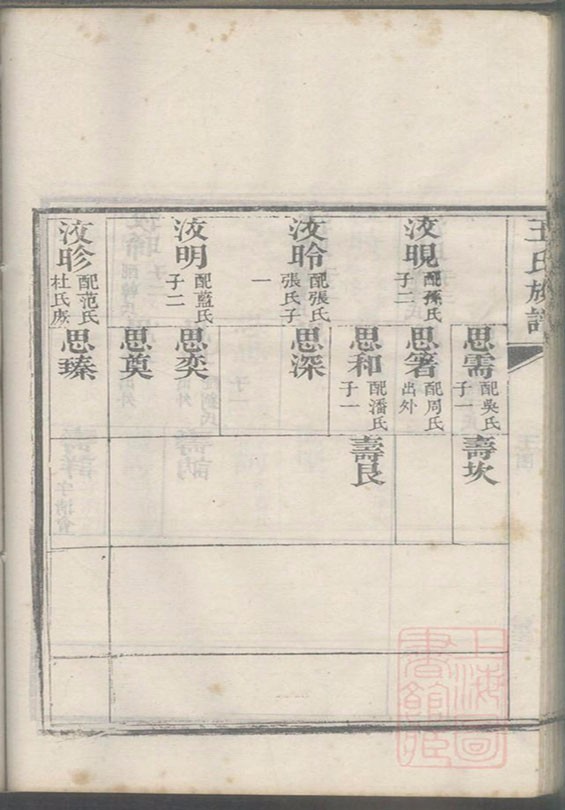 王氏族譜
汝晛 配孫氏 子二
思需 配吳氏 子一
壽坎
思箸 配周氏 出外
汝昤 配張氏 張氏子一
思和 配潘氏 子一
壽艮
思深
汝明 配藍氏 子二
思奕
思奠
汝昣 配范氏 杜氏庶
思臻
上海圖書館藏